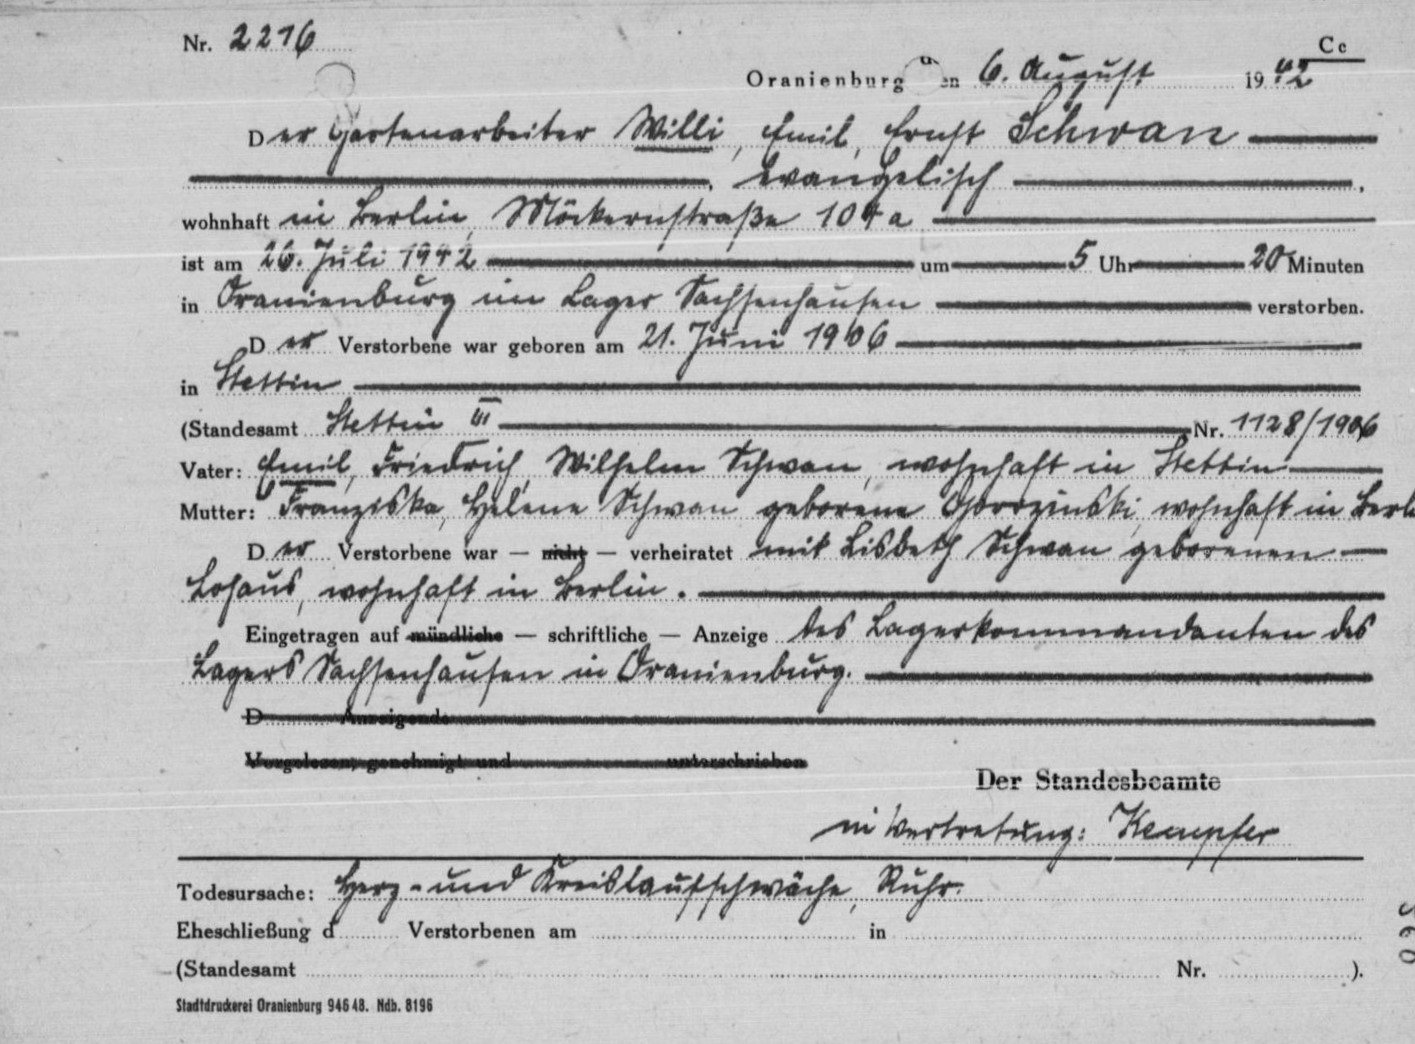 Nr. 2216
Cc
Oranienburg den 6. August 1942
Der Gartenarbeiter Willi, Emil, Ernst Schwan
, evangelisch ,
wohnhaft in Berlin, Möckernstraße 104 a
ist am 26. Juli 1942 um 5 Uhr 20 Minuten
in Oranienburg im Lager Sachsenhausen verstorben.
Der Verstorbene war geboren am 21. Juni 1906
in Stettin
(Standesamt Stettin III Nr. 1128/1906
Vater: Emil, Friedrich, Wilhelm Schwan, wohnhaft in Stettin
Mutter: Franziska, Helene Schwan geborene wohnhaft in Berl
Der Verstorbene war — nicht — verheiratet mit Lisbeth Schwan geborenen
Lohaus, wohnhaft in Berlin.
Eingetragen auf mündliche — schriftliche — Anzeige des Lagerkommandanten des
Lagers Sachsenhausen in Oranienburg.
D Anzeigende
Vorgelesen, genehmigt und unterschrieben
Der Standesbeamte
in Vertretung: Kempfer
Todesursache: Herz- und Kreislaufschwäche, Ruhr.
Eheschließung d Verstorbenen am in
(Standesamt Nr. ).
Stadtdruckerei Oranienburg 946 48. Ndb. 8196